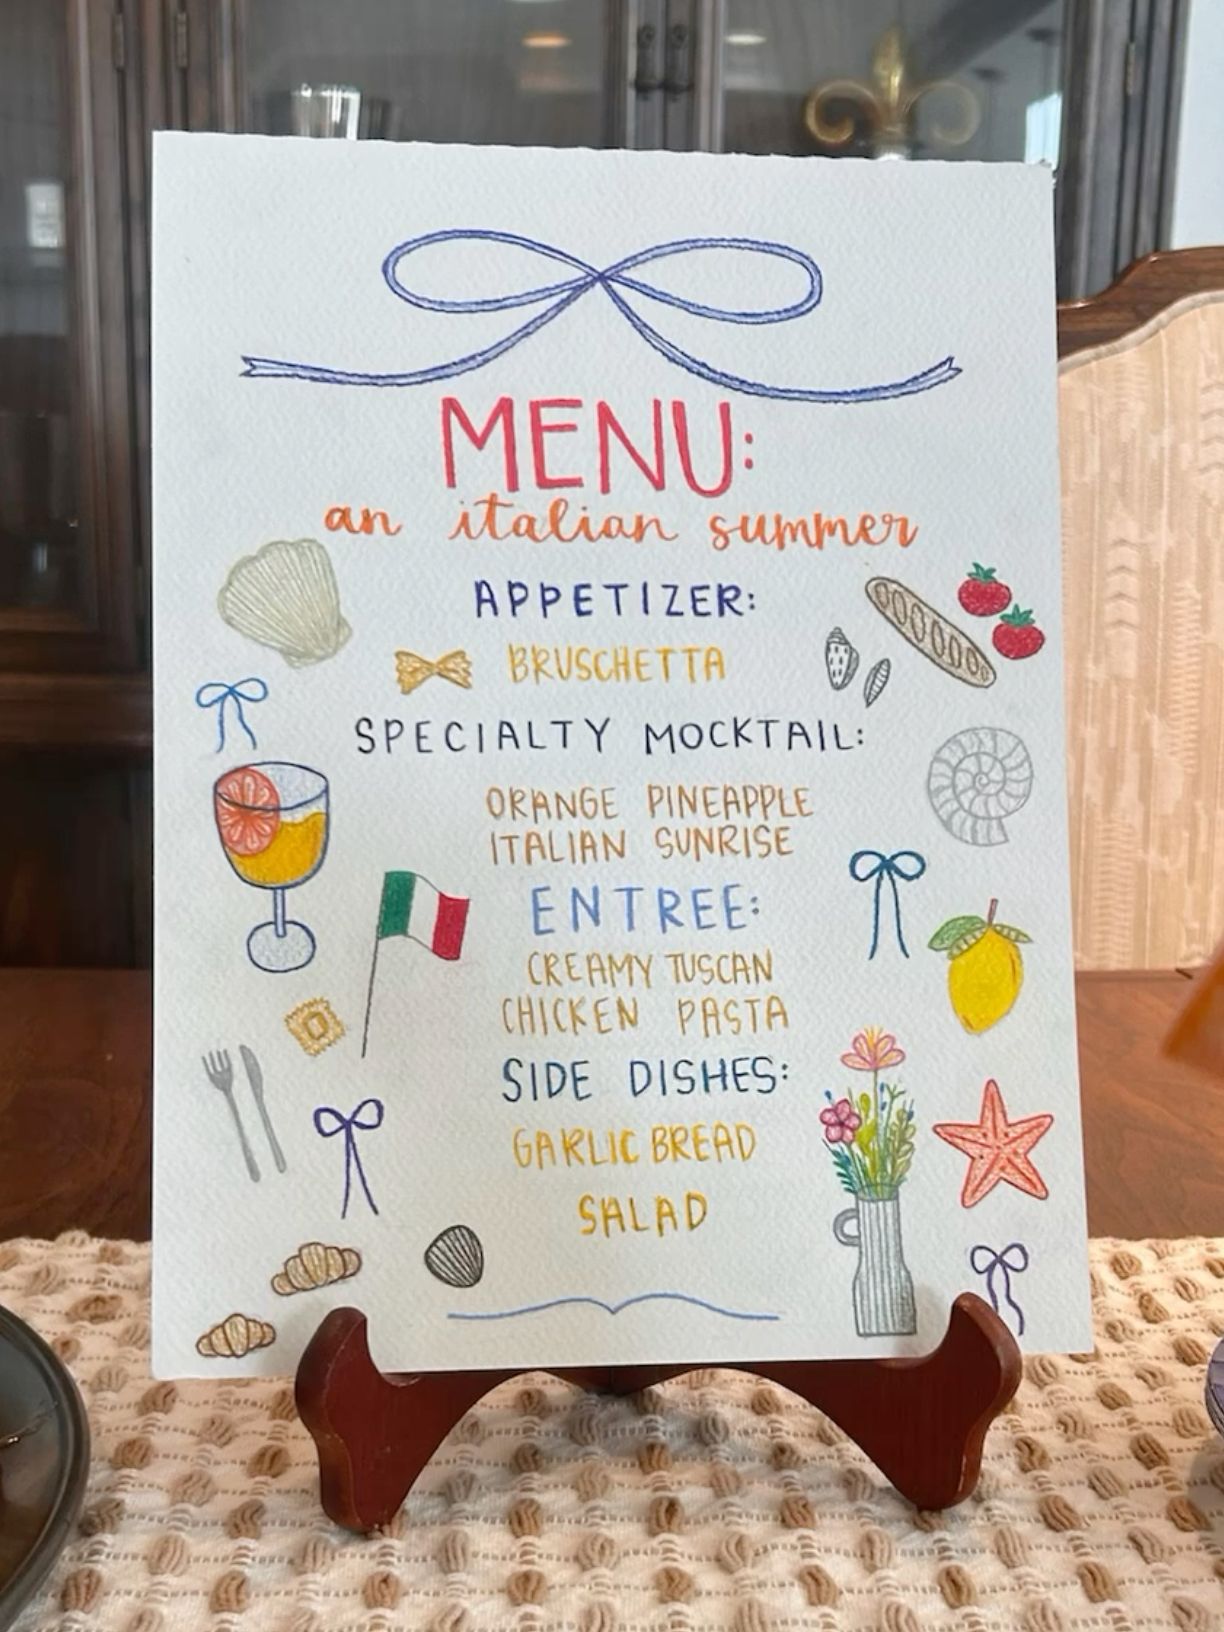 MENU:
an italian summer
APPETIZER:
BRUSCHETTA
SPECIALTY MOCKTAIL:
ORANGE PINEAPPLE
ITALIAN SUNRISE
ENTREE:
CREAMY TUSCAN
CHICKEN PASTA
SIDE DISHES:
GARLIC BREAD
SALAD